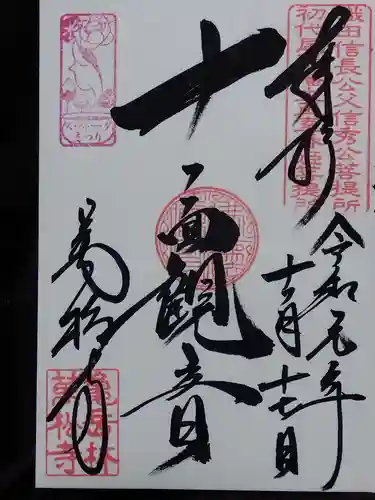 奉拝
織田信長公父信秀公菩提所
初代 春姫菩提所
令和元年
十一月十七日
十一面観音
萬松寺
亀岳林
萬松寺
まつり